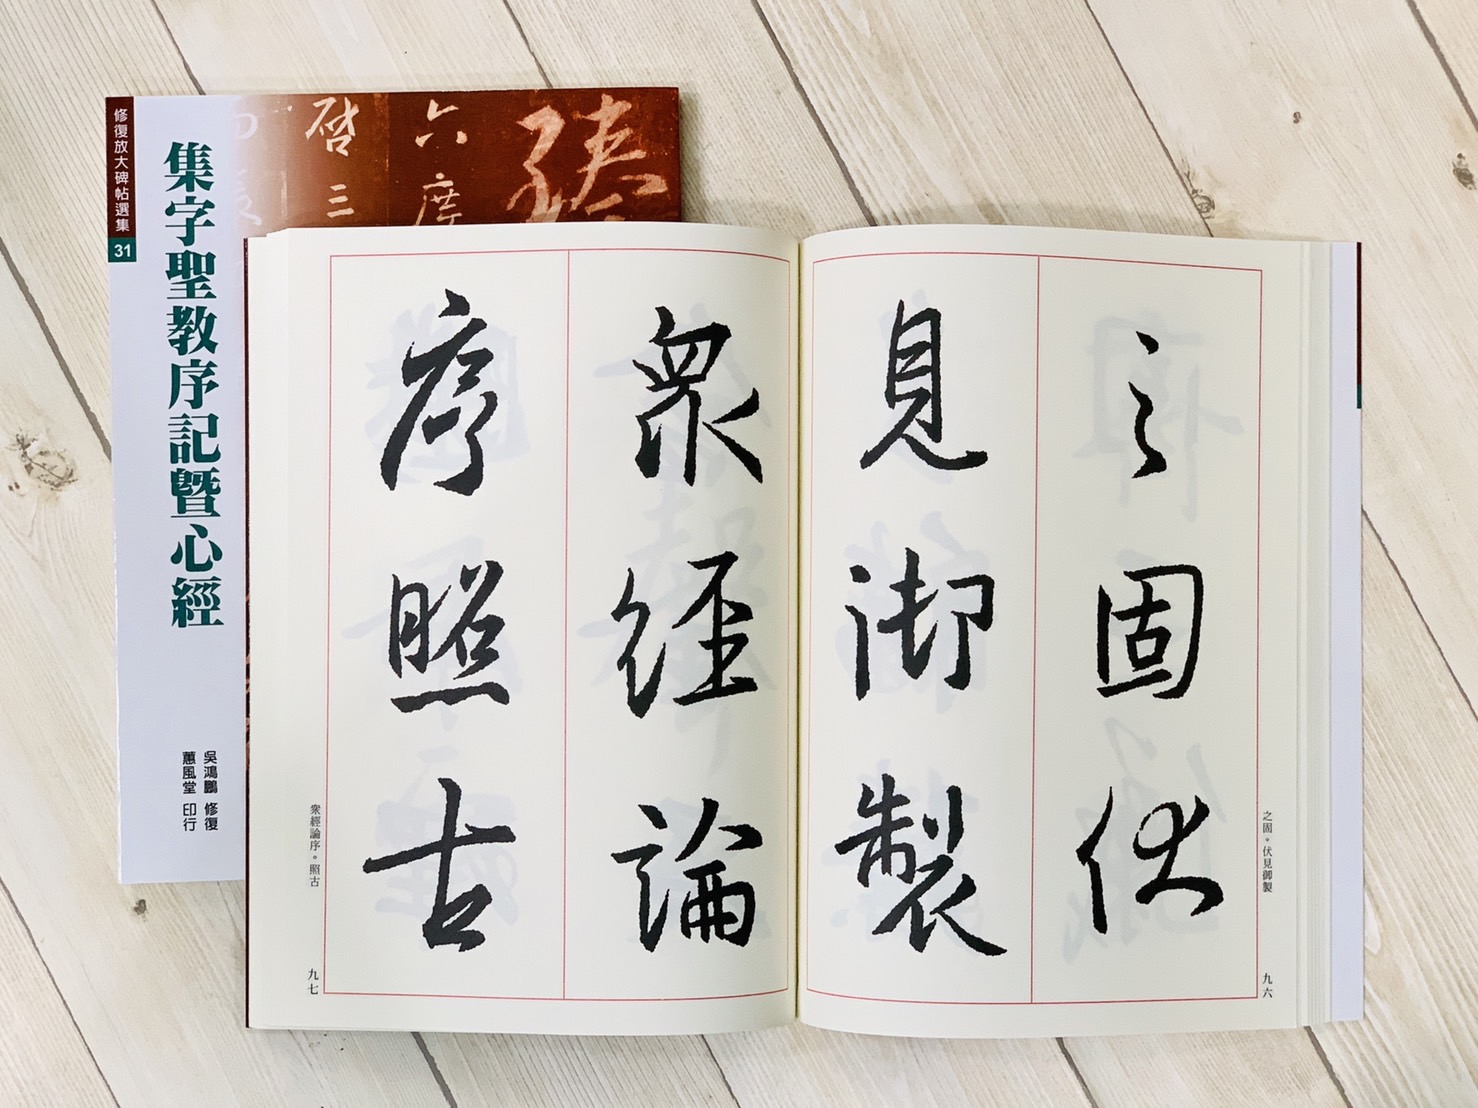 修復放大碑帖選集
31
集字聖教序記暨心經
吳鴻鵬 修復
蕙風堂 印行
六度
啓三
之固伏
見御製
眾經論
序照古
之固。伏見御製
九六
眾經論序。照古
九七